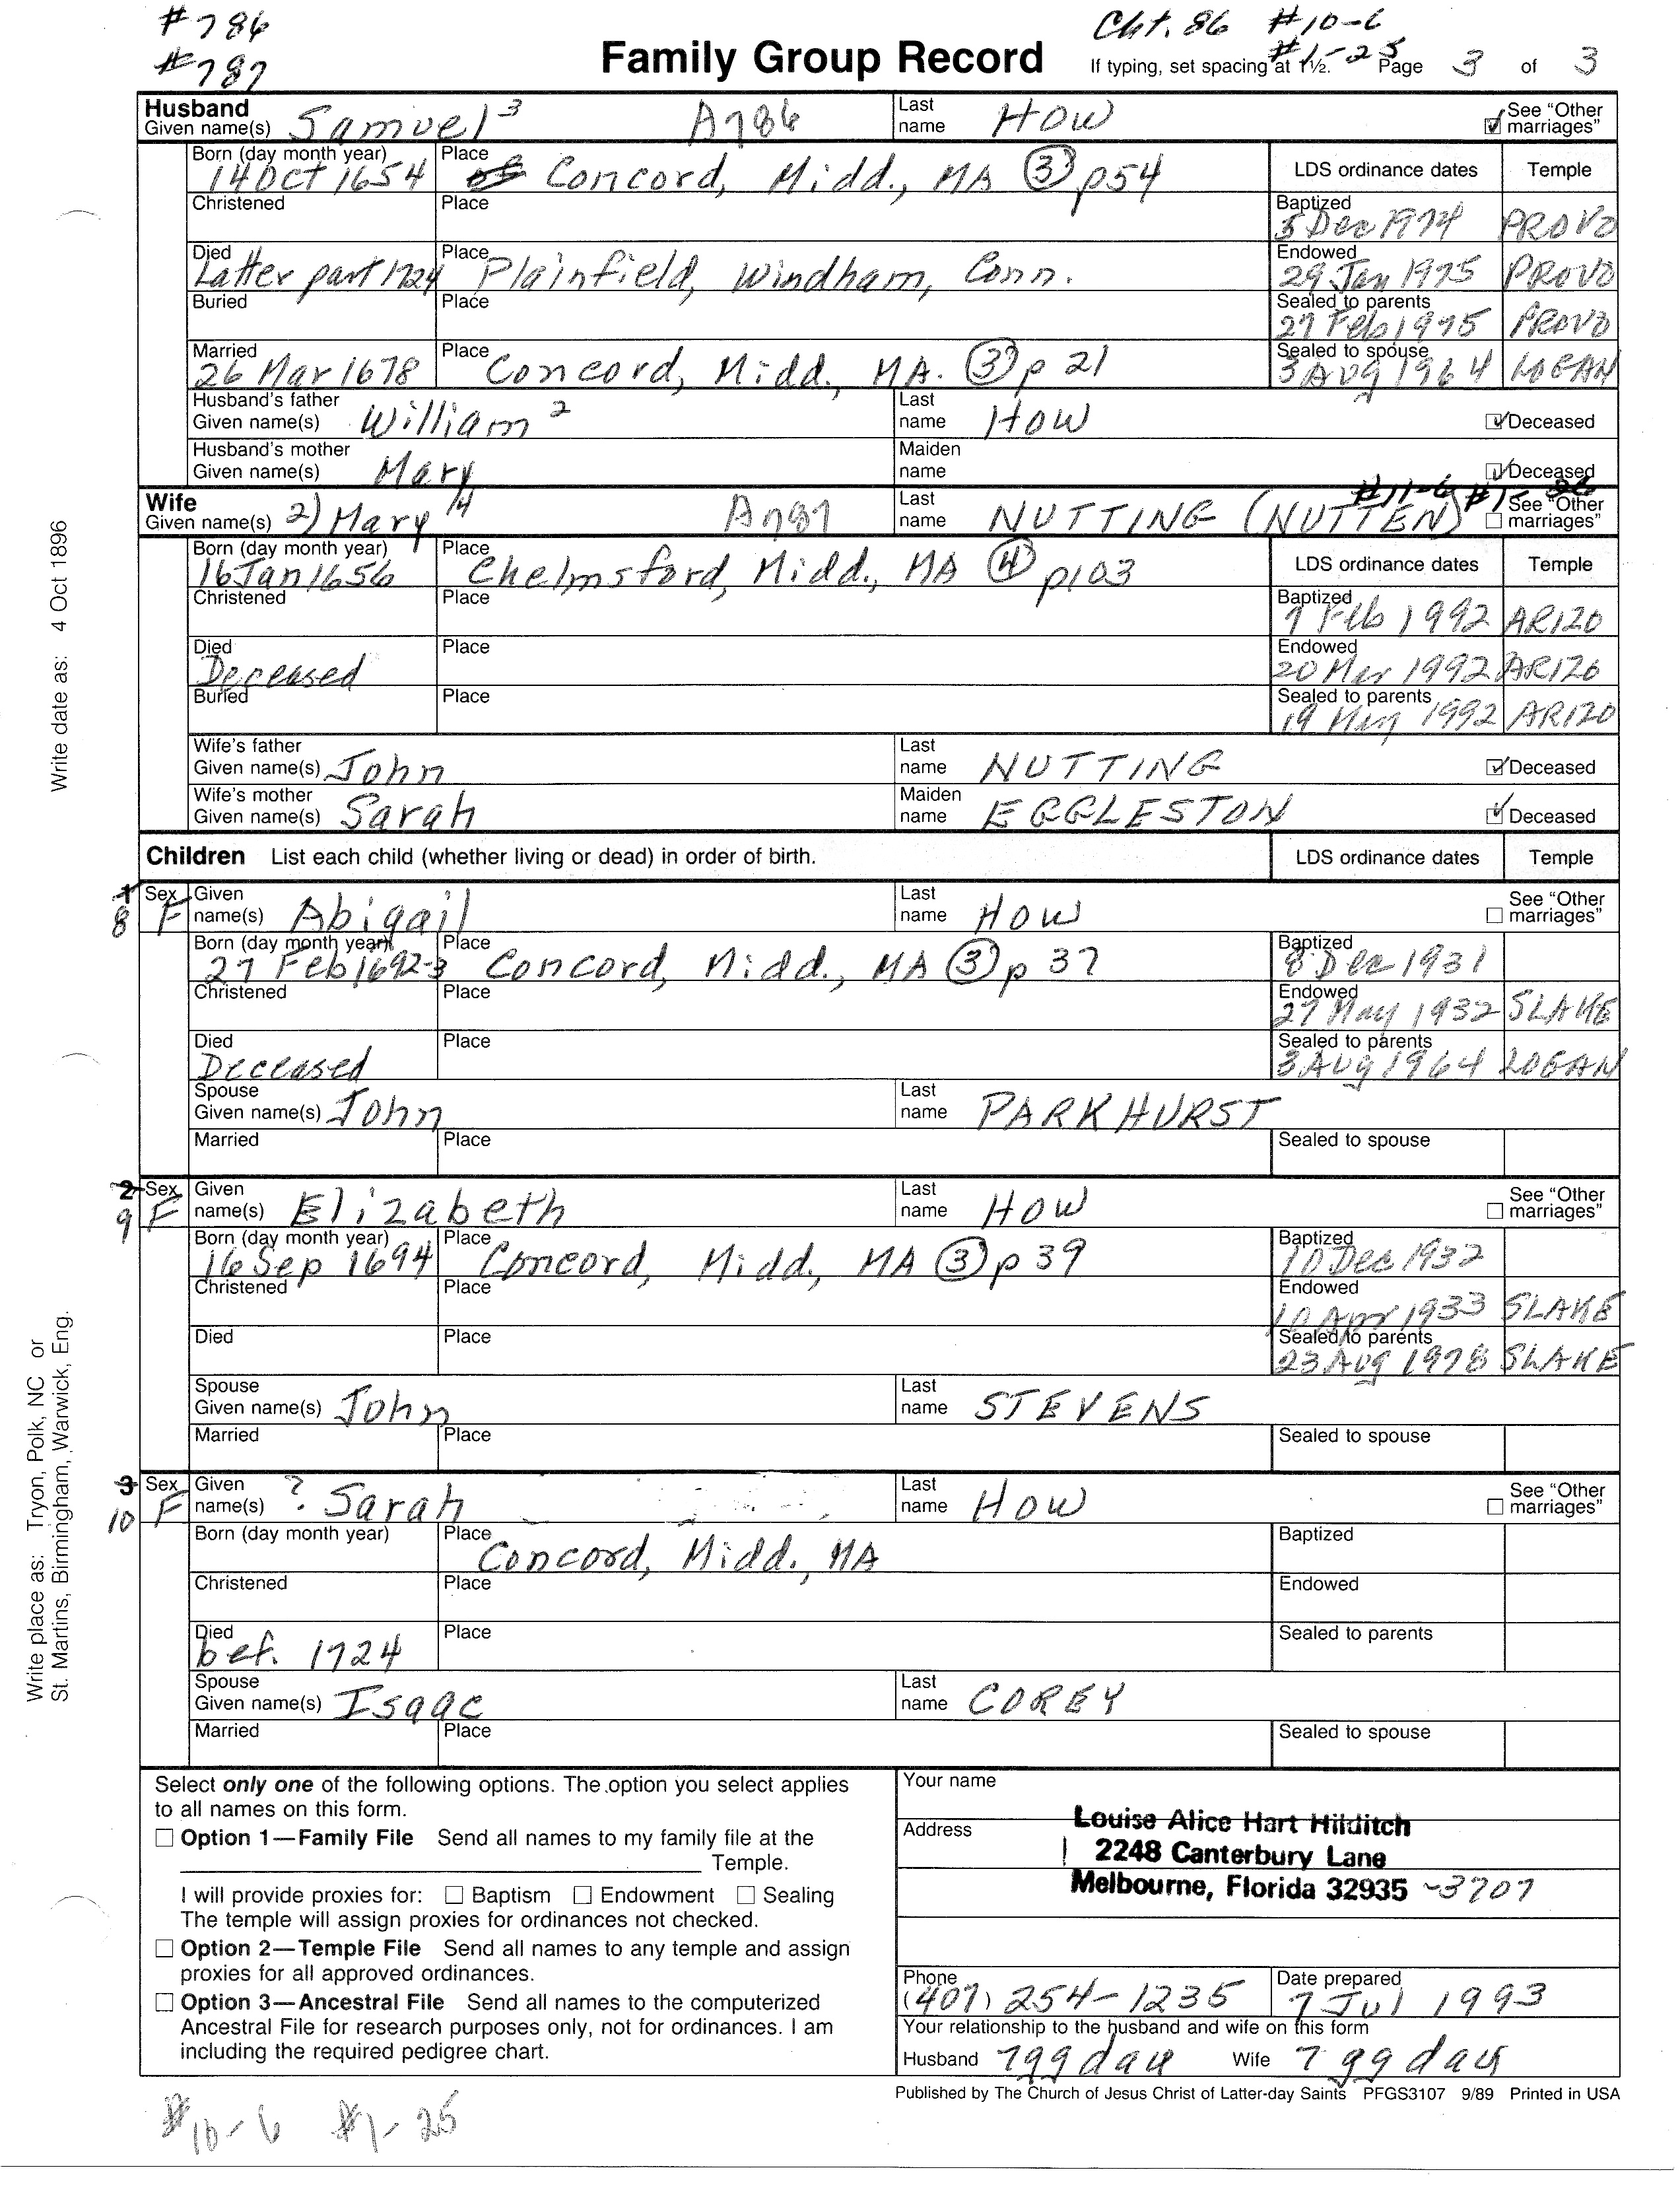 #786
#787
Cht. 86 #10-6
#1-25
Family Group Record
If typing, set spacing at 1½. Page 3 of 3
Husband
Given name(s) Samuel 3 A786 Last name HOW
☑ See "Other marriages"
Born (day month year) 14 Oct 1654 Place Concord, Midd., MA (3) p54
LDS ordinance dates Temple
Christened Place
Baptized 3 Dec 1974 PROVO
Died Latter part 1724 Place Plainfield, Windham, Conn.
Endowed 29 Jan 1975 PROVO
Buried Place
Sealed to parents 27 Feb 1975 PROVO
Married 26 Mar 1678 Place Concord, Midd., MA. (3) p 21
Sealed to spouse 3 Aug 1964 LOGAN
Husband's father Given name(s) William 2 Last name HOW ☑ Deceased
Husband's mother Given name(s) Mary Maiden name ☑ Deceased
#11-6 #1-26
Wife
Given name(s) 2) Mary 4 A787 Last name NUTTING (NUTTEN) ☐ See "Other marriages"
Born (day month year) 16 Jan 1656 Place Chelmsford, Midd., MA (4) p103
LDS ordinance dates Temple
Christened Place
Baptized 7 Feb 1992 ARIZO
Died Deceased Place
Endowed 20 Mar 1992 ARIZO
Buried Place
Sealed to parents 19 May 1992 ARIZO
Wife's father Given name(s) John Last name NUTTING ☑ Deceased
Wife's mother Given name(s) Sarah Maiden name EGGLESTON ☑ Deceased
Children List each child (whether living or dead) in order of birth.
LDS ordinance dates Temple
1 8 Sex F Given name(s) Abigail Last name HOW ☐ See "Other marriages"
Born (day month year) 27 Feb 1692-3 Place Concord, Midd., MA (3) p 37
Baptized 8 Dec 1931
Christened Place
Endowed 27 May 1932 SLAKE
Died Deceased Place
Sealed to parents 3 Aug 1964 LOGAN
Spouse Given name(s) John Last name PARKHURST
Married Place Sealed to spouse
2 9 Sex F Given name(s) Elizabeth Last name HOW ☐ See "Other marriages"
Born (day month year) 16 Sep 1694 Place Concord, Midd., MA (3) p 39
Baptized 10 Dec 1932
Christened Place
Endowed 10 Apr 1933 SLAKE
Died Place
Sealed to parents 23 Aug 1978 SLAKE
Spouse Given name(s) John Last name STEVENS
Married Place Sealed to spouse
3 10 Sex F Given name(s) ? Sarah Last name HOW ☐ See "Other marriages"
Born (day month year) Place Concord, Midd., MA
Baptized
Christened Place
Endowed
Died bef. 1724 Place
Sealed to parents
Spouse Given name(s) Isaac Last name COREY
Married Place Sealed to spouse
Select only one of the following options. The option you select applies
to all names on this form.
☐ Option 1—Family File Send all names to my family file at the
Temple.
I will provide proxies for: ☐ Baptism ☐ Endowment ☐ Sealing
The temple will assign proxies for ordinances not checked.
☐ Option 2—Temple File Send all names to any temple and assign
proxies for all approved ordinances.
☐ Option 3—Ancestral File Send all names to the computerized
Ancestral File for research purposes only, not for ordinances. I am
including the required pedigree chart.
Your name
Louise Alice Hart Hilditch
Address
2248 Canterbury Lane
Melbourne, Florida 32935 -3707
Phone (407) 254-1235 Date prepared 7 Jul 1993
Your relationship to the husband and wife on this form
Husband 7 gg dau Wife 7 gg dau
Published by The Church of Jesus Christ of Latter-day Saints PFGS3107 9/89 Printed in USA
#10-6 #1-25
Write date as: 4 Oct 1896
Write place as: Tryon, Polk, NC or
St. Martins, Birmingham, Warwick, Eng.